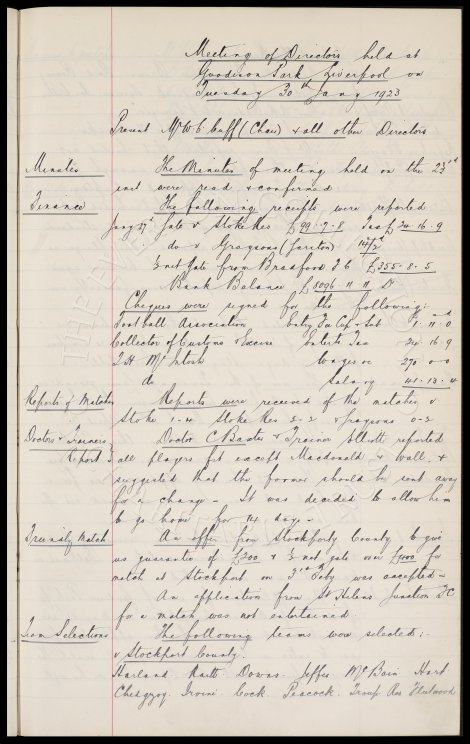 Meeting of Directors held at
Goodison Park Liverpool on
Tuesday 30th Jany 1923
Present Mr W. C. Cuff (Chair) & all other Directors
Minutes The Minutes of meeting held on the 23rd
inst were read & confirmed
Finance The following receipts were reported
Jany 27th Gate v Stoke Res £99-7-8 Tax £24-16-9
do v Grayson's (Garston)
½ net Gate from Bradford F C £355-8-5
Bank Balance £8096-11-11 Dr
Cheques were signed for the following:-
Football Association Entry Fee Cup 1-11-0
Collector of Customs & Excise Enterts Tax 24 16 9
T. H. McIntosh Wages 270 0-0
do Salary 41-13-4
Reports of Matches Reports were received of the matches v
Stoke 1-4 Stoke Res 2-2 & Graysons 0-2
Doctor's & Trainer's Doctor C Baxter & Trainer Elliott reported
Report all players fit except Macdonald & Wall, &
suggested that the former should be sent away
for a change - It was decided to allow him
to go home for 14 days -
Friendly Match An offer from Stockport County to give
us guarantee of £200 & ½ net gate over £400 for
match at Stockport on 3rd Feby was accepted -
An application from St Helens Junction FC
for a match was not entertained.
Team Selections The following teams were selected:-
v Stockport County.
Harland Raitt Downs Jeffs McBain Hart
Chedgzoy Irvine Cock Peacock Troup Res Fleetwood